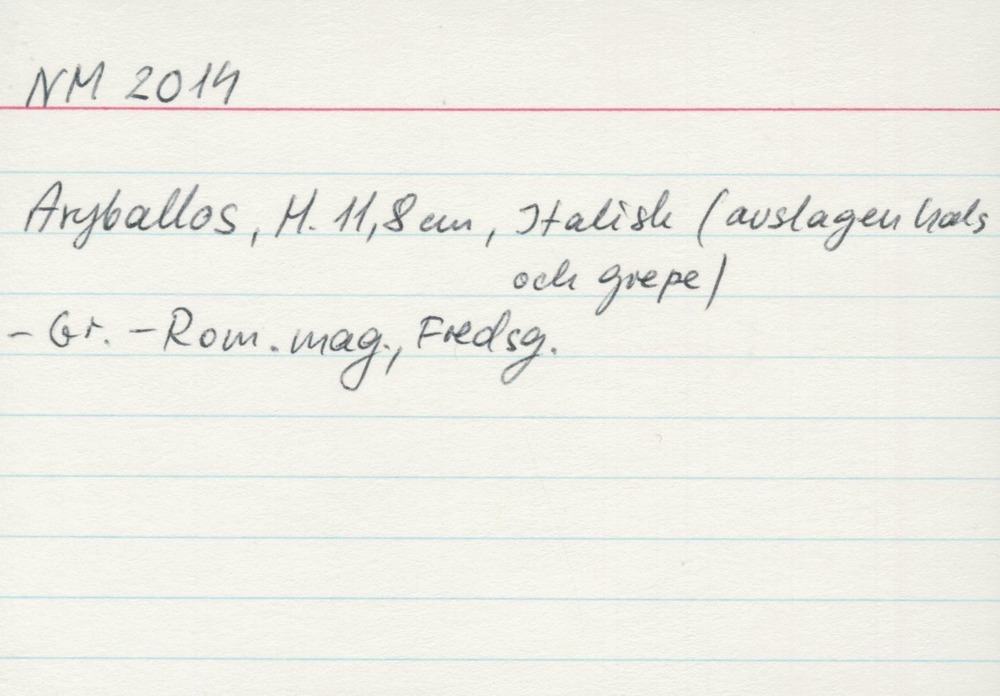 NM 2014
Aryballos, H. 11,8 cm, Italisk (avslagen hals
och grepe)
- Gr. - Rom. mag., Fredsg.